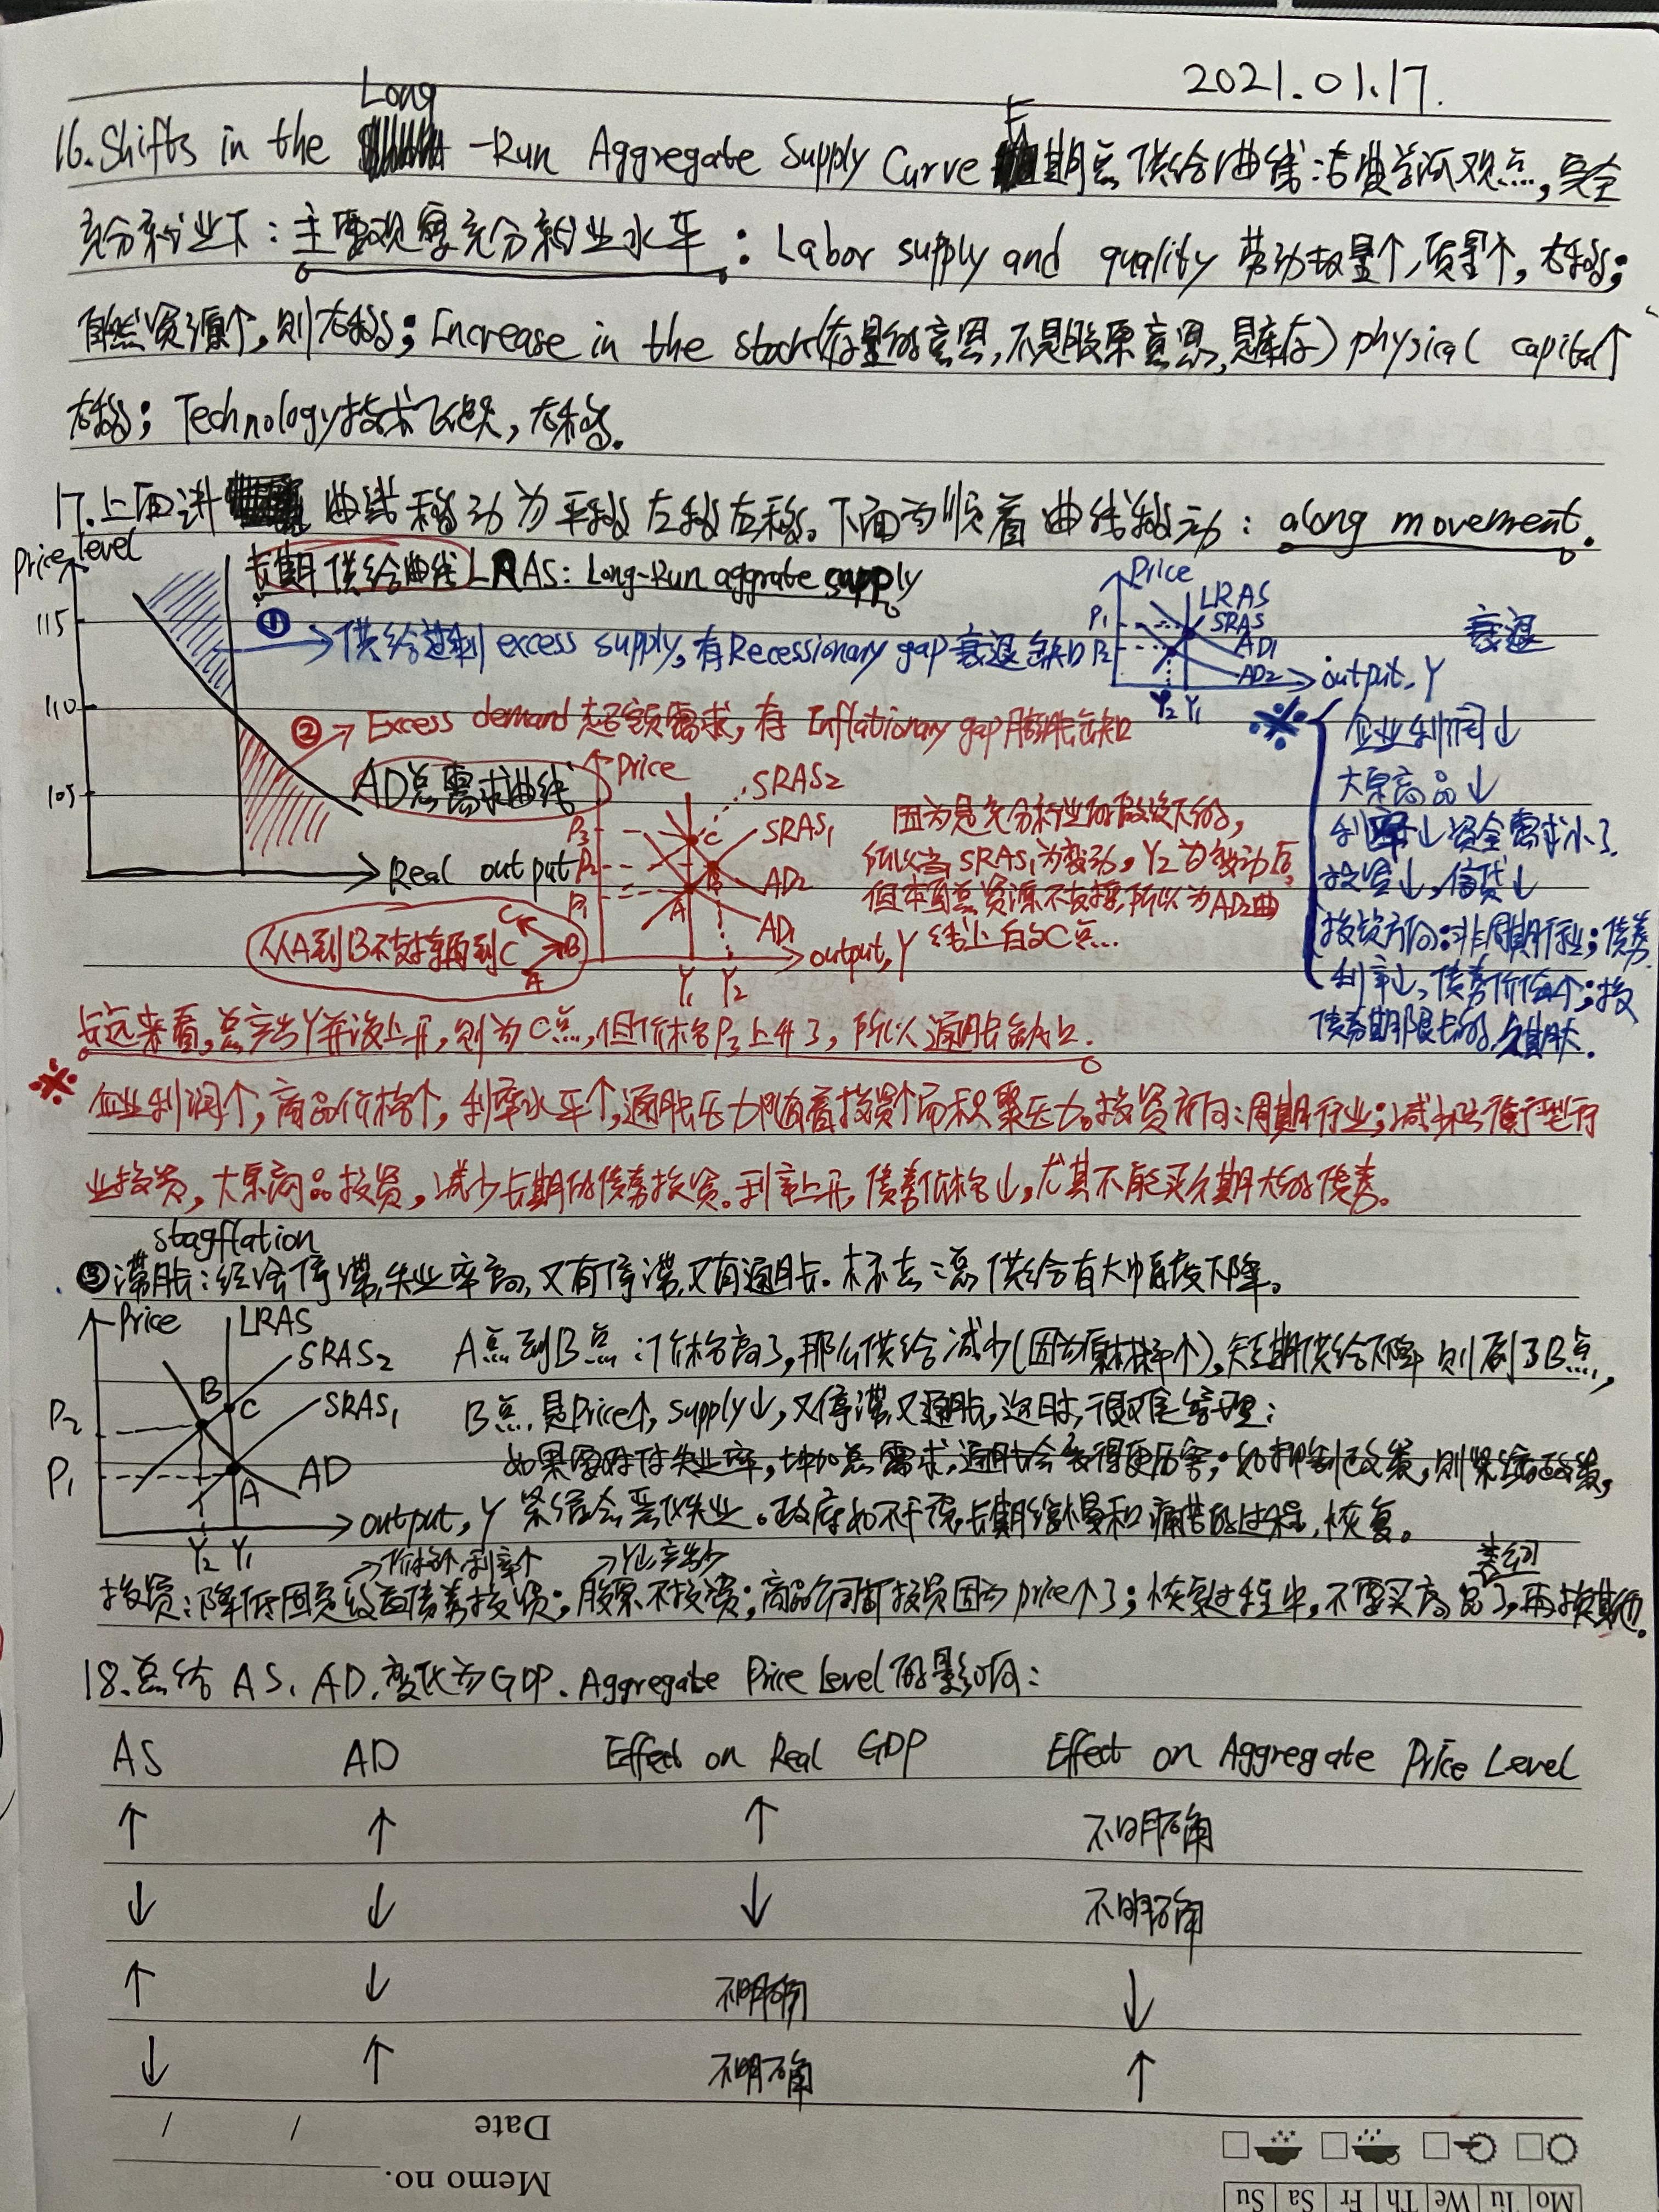 2021.01.17.
16. Shifts in the Long-Run Aggregate Supply Curve 长期总供给曲线:古典学派观点,完全
充分就业下:主要观察充分就业水平:Labor supply and quality 劳动数量↑,质量↑,右移;
自然资源↑,则右移;Increase in the stock(存量的意思,不是股票意思,是库存) physical capital↑
右移;Technology技术飞跃,右移.
17.上面讲曲线移动为平移左移右移。下面为顺着曲线移动:along movement.
Price level
长期供给曲线LRAS: Long-Run aggrate supply
115
110
105
① → 供给过剩 excess supply,有Recessionary gap 衰退缺口
② → Excess demand 超额需求,有 Inflationary gap膨胀缺口
AD总需求曲线
Real output
Price
LRAS
SRAS
AD1
AD2
P1
P2
Y2 Y1
output, Y
衰退
※ 企业利润↓
大宗商品↓
利率↓资金需求小了
投资↓,信贷↓
投资方向:非周期行业;债券
利率↓,债券价值↑;投
债券期限长的,久期大.
Price
SRAS2
SRAS1
AD2
AD1
P3
P2
P1
A
B
C
Y1 Y2
output, Y
因为是充分就业的假设下的,
所以当SRAS1为变动,Y2为变动后,
但本国总资源不支撑,所以为AD2曲
线上白的C点...
从A到B不支撑再到C
C
B
A
长远来看,总产出Y并没上升,则为C点,但价格P3上升了,所以通胀缺口.
※ 企业利润↑,商品价格↑,利率水平↑,通胀压力随着投资↑而积聚压力。投资方向:周期行业;减少防御型行
业投资,大宗商品投资,减少长期的债券投资。利率上升,债券价格↓,尤其不能买久期大的债券。
stagflation
③滞胀:经济停滞,失业率高,又有停滞,又有通胀.标志:总供给有大幅度下降。
Price
LRAS
SRAS2
SRAS1
AD
P2
P1
A
B
C
Y2 Y1
output, Y
A点到B点:价格高了,那么供给减少(因为原材料↑),短期供给下降则到了B点,
B点是Price↑, supply↓,又停滞又通胀,这时,很难管理:
如果要对付失业率,增加总需求,通胀会变得更厉害;如抑制政策,则紧缩政策,
紧缩会恶化失业。政府如不干预,长期缓慢和痛苦的过程,恢复。
→价格↑,利率↑
→Y↓产出少
类似
投资:降低固定收益债券投资;股票不投资;商品何时投资因为price↑了;恢复过程中,不要买商品了,再投其他.
18.总结 AS、AD.变化为GDP.Aggregate Price Level的影响:
AS AD Effect on Real GDP Effect on Aggregate Price Level
↑ ↑ ↑ 不明确
↓ ↓ ↓ 不明确
↑ ↓ 不明确 ↓
↓ ↑ 不明确 ↑
Date / /
Memo no.
Mo Tu We Th Fr Sa Su